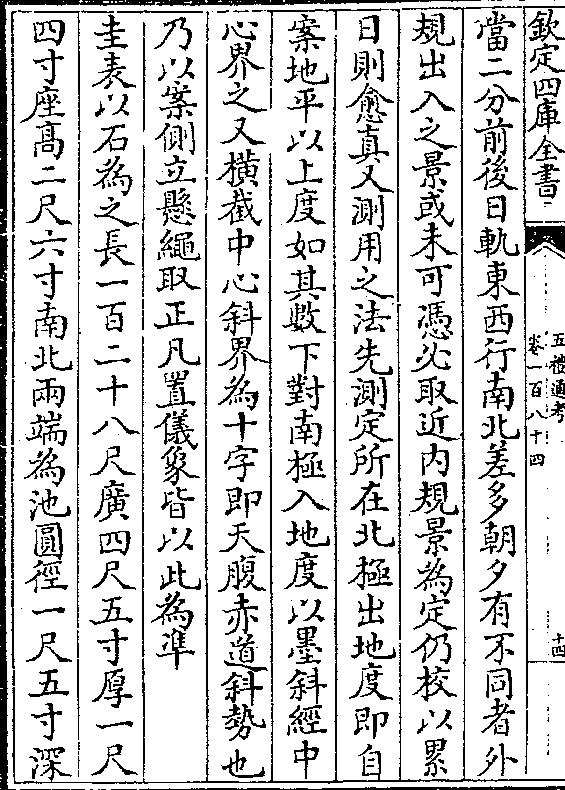 欽定四庫全書
五禮通考
卷一百八十四
十四
當二分前後日軌東西行南北差多朝夕有不同者外
規出入之景或未可憑必取近内規景為定仍校以累
日則愈真又測用之法先測定所在北極出地度即自
案地平以上度如其數下對南極入地度以墨斜經中
心界之又横截中心斜界為十字即天腹赤道斜勢也
乃以案側立懸繩取正凡置儀象皆以此為準
圭表以石為之長一百二十八尺廣四尺五寸厚一尺
四寸座髙二尺六寸南北兩端為池圓徑一尺五寸深